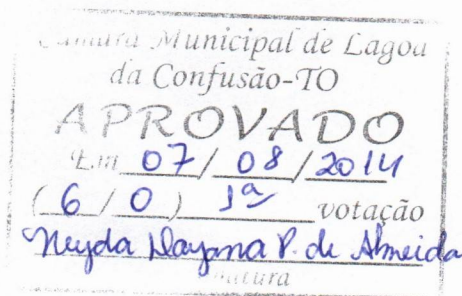 Câmara Municipal de Lagoa
da Confusão-TO
APROVADO
Em 07/08/2014
(6/0) 1ª votação
Neyda Dayana P. de Almeida